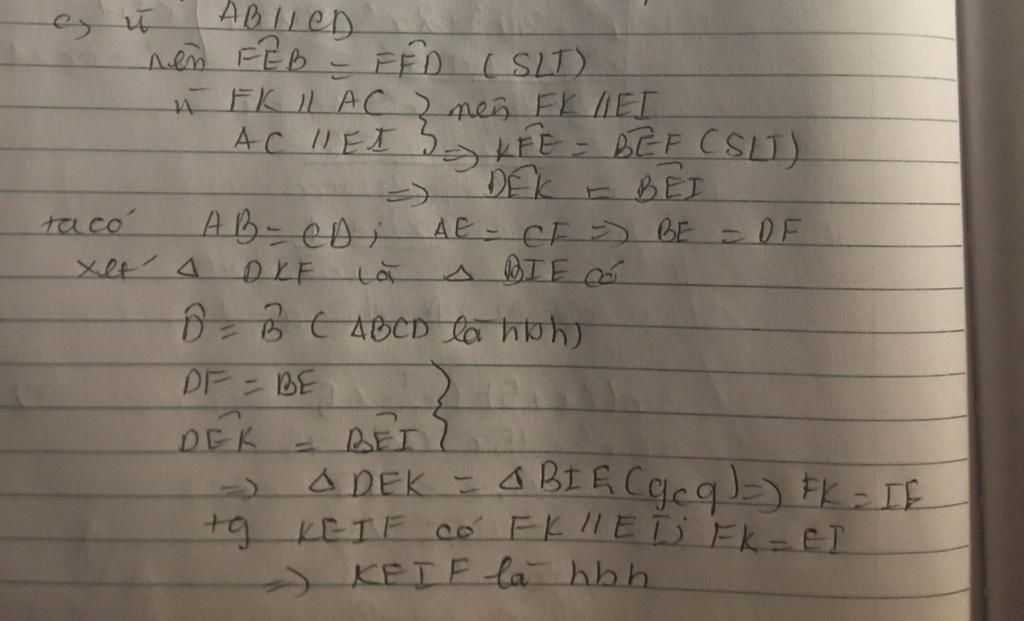 c, vì AB // CD
nên FEB = FED (SLT)
vì FK // AC } nên FK // EI
AC // EI } => KFE = BEF (SLT)
=> DEK = BEI
ta có AB = CD; AE = CF => BE = DF
xét Δ DKF là Δ BIE có
D = B (ABCD là hbh)
DF = BE
DEK = BEI
=> Δ DEK = Δ BIE (gcg) => FK = IE
tg KEIF có FK // EI; FK = EI
=> KEIF là hbh